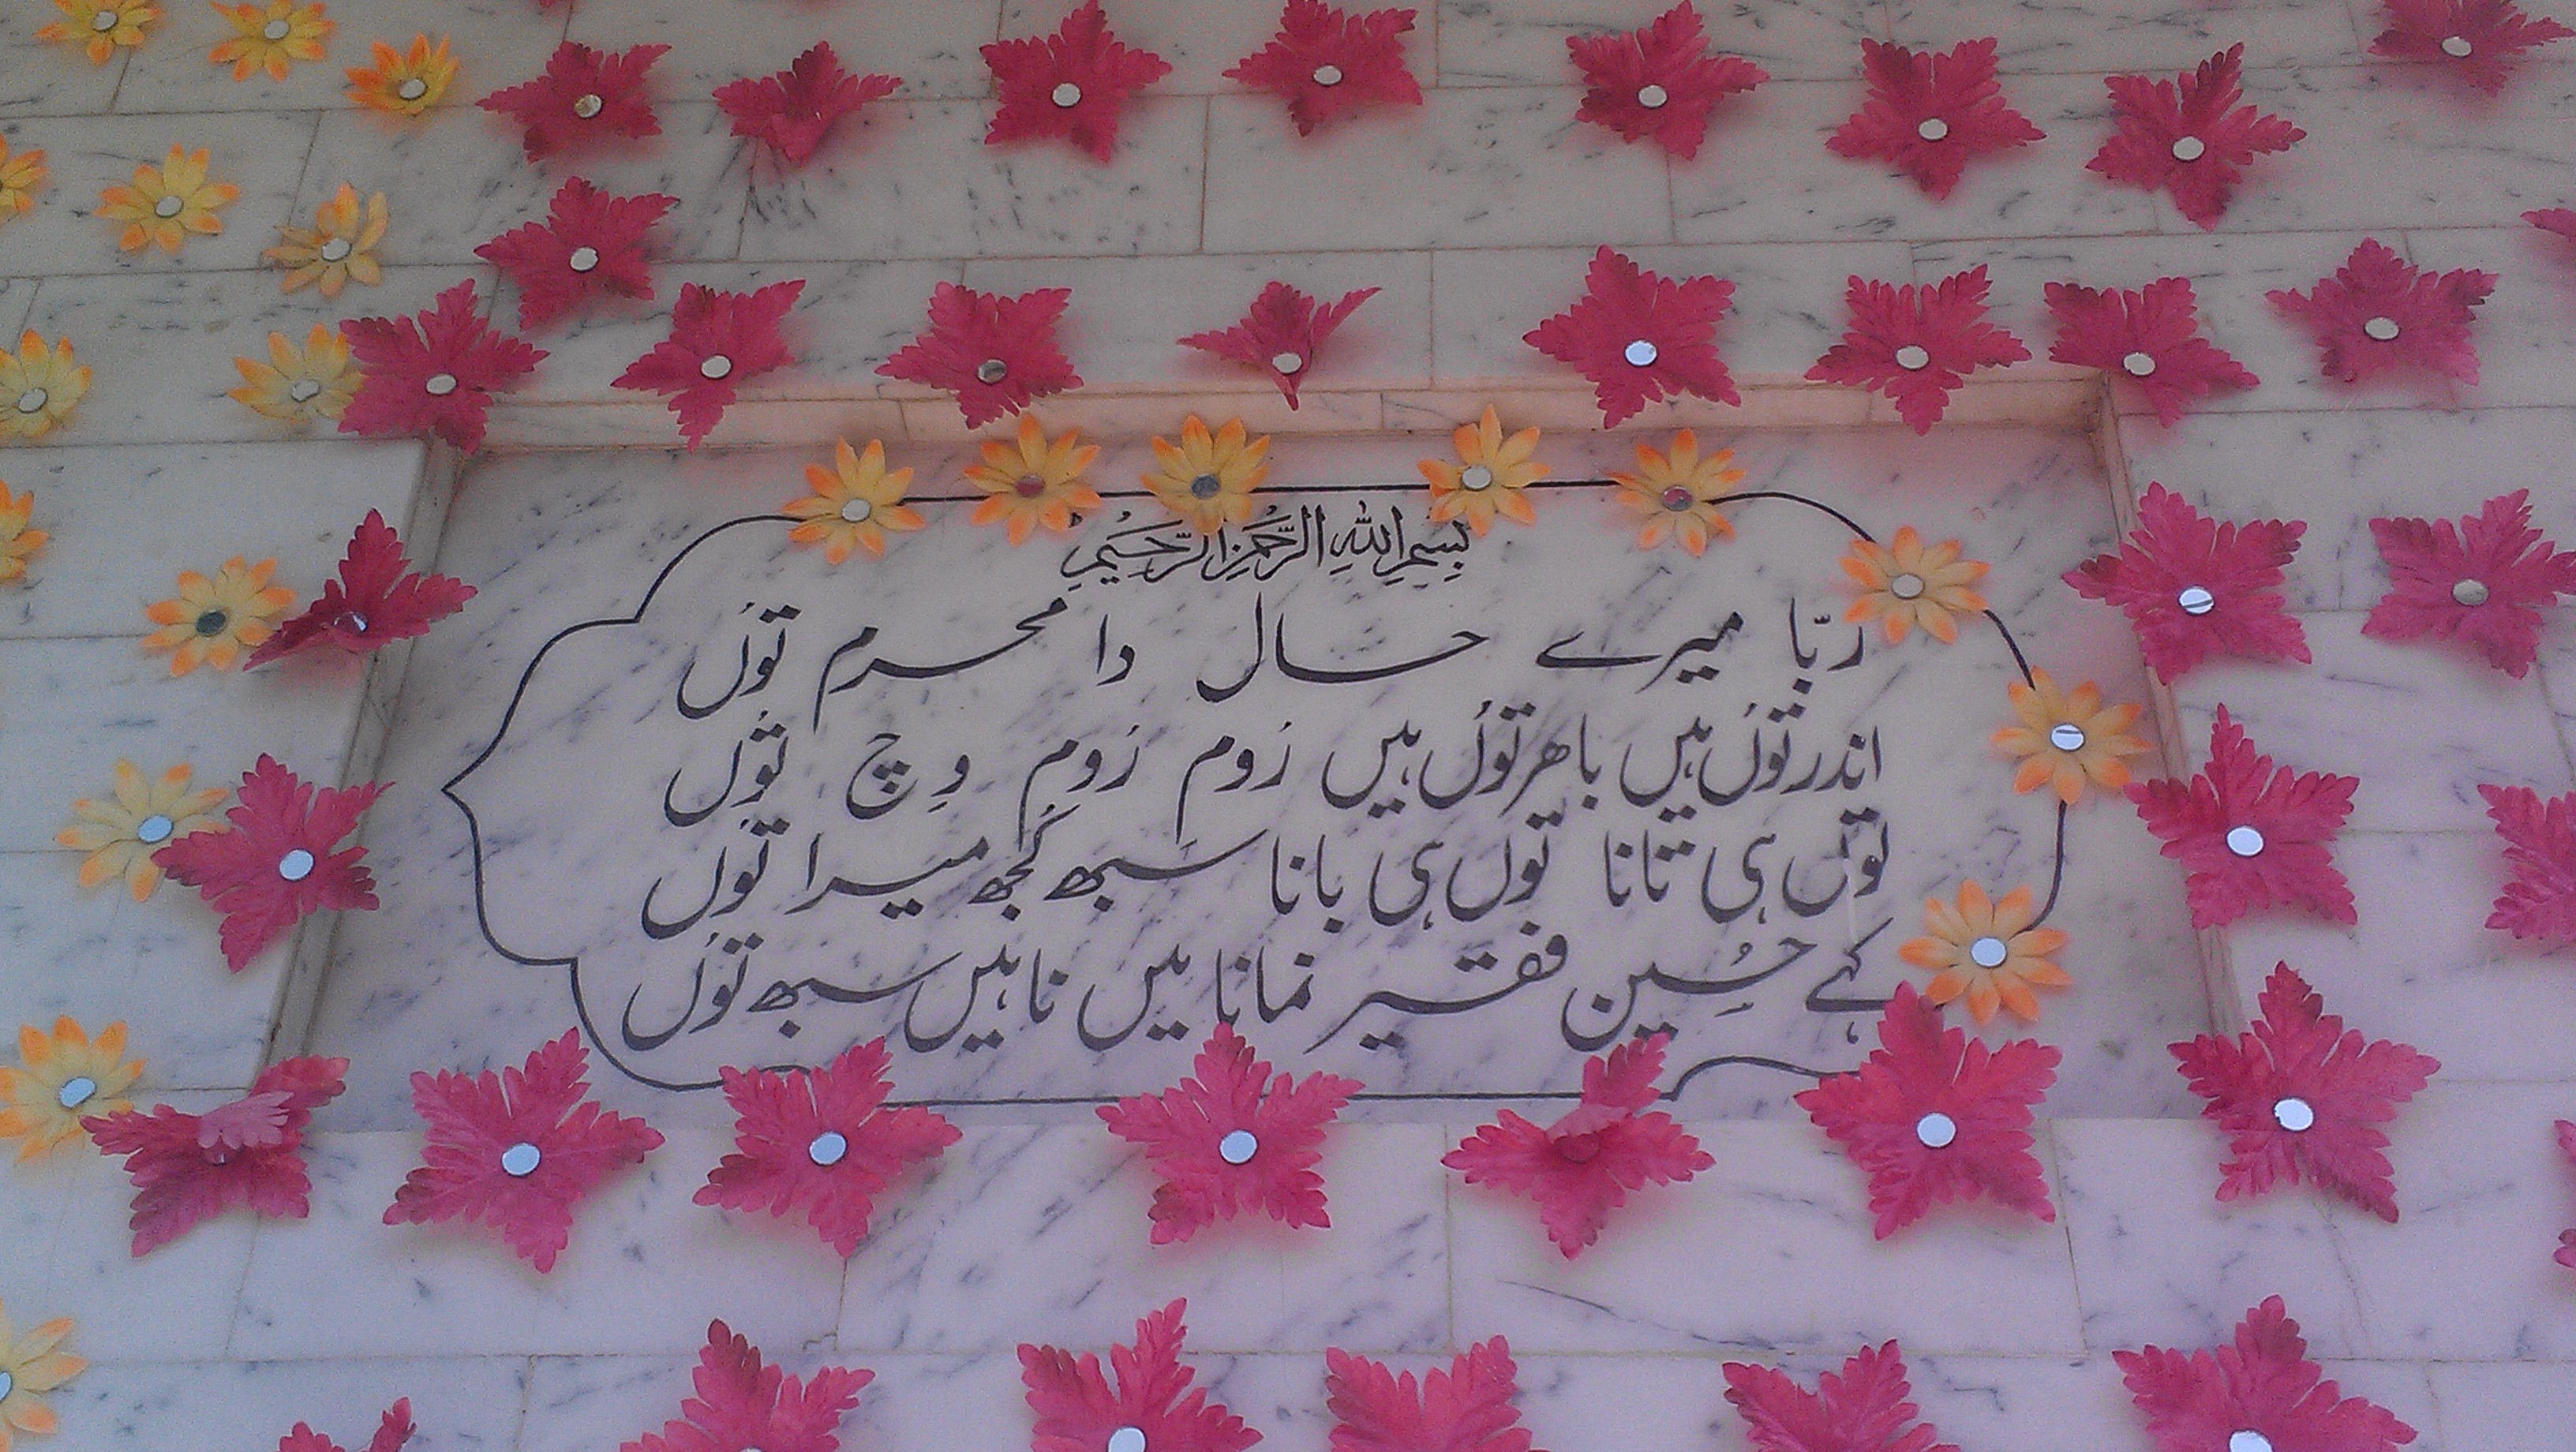 بِسْمِ اللهِ الرَّحْمٰنِ الرَّحِيْمِ
ربّا میرے حال دا محرم تُوں
اندر تُوں ہیں باھر تُوں ہیں رُوم رُوم وِچ تُوں
تُوں ہی تانا تُوں ہی بانا سبھ کُجھ میرا تُوں
کہے حُسین فقیر نمانا میں ناہیں سبھ تُوں